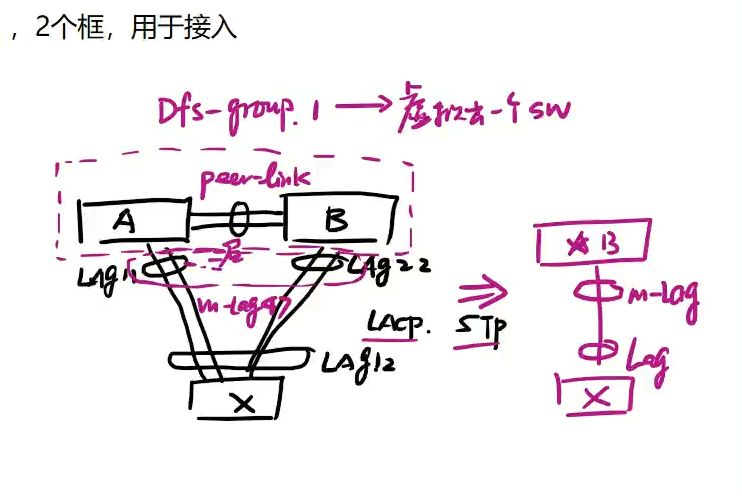 ，2个框，用于接入
Dfs-group.1 → 虚拟出一个SW
peer-link
A
B
LAG11
LAG22
m-lag
LAG12
X
LAcp. STp
B
m-Lag
Lag
X